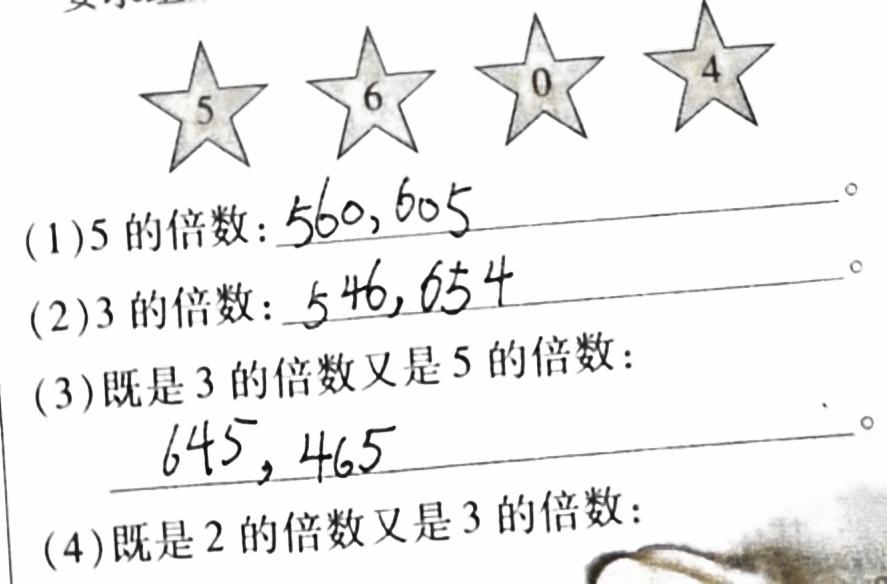 5 6 0 4
(1)5 的倍数：560,605。
(2)3 的倍数：546,654。
(3)既是 3 的倍数又是 5 的倍数：
645,465。
(4)既是 2 的倍数又是 3 的倍数：